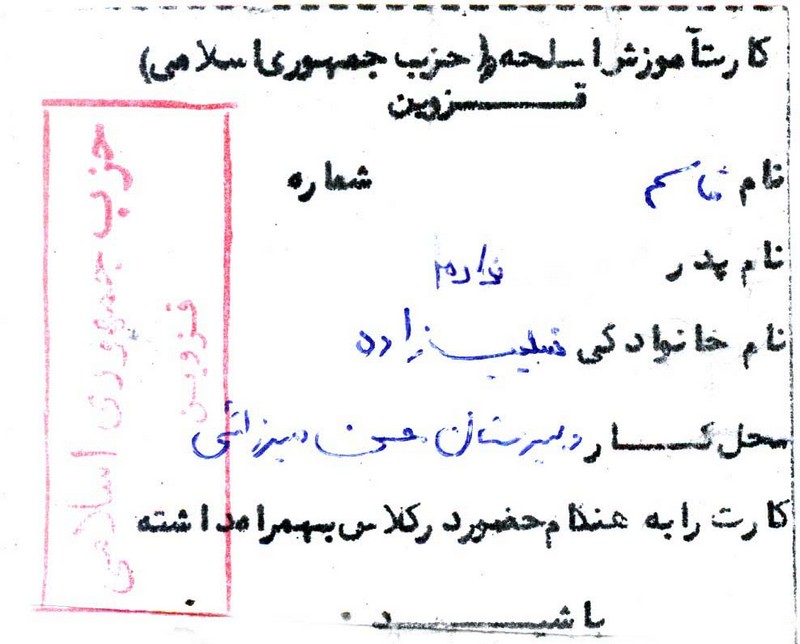 کارت آموزش اسلحه (حزب جمهوری اسلامی)
قزوین
نام قاسم
شماره
نام پدر
نام خانوادگی
محل کار دبیرستان حسن میرزائی
کارت را به هنگام حضور در کلاس بهمراه داشته
باشید.
حزب جمهوری اسلامی
قزوین